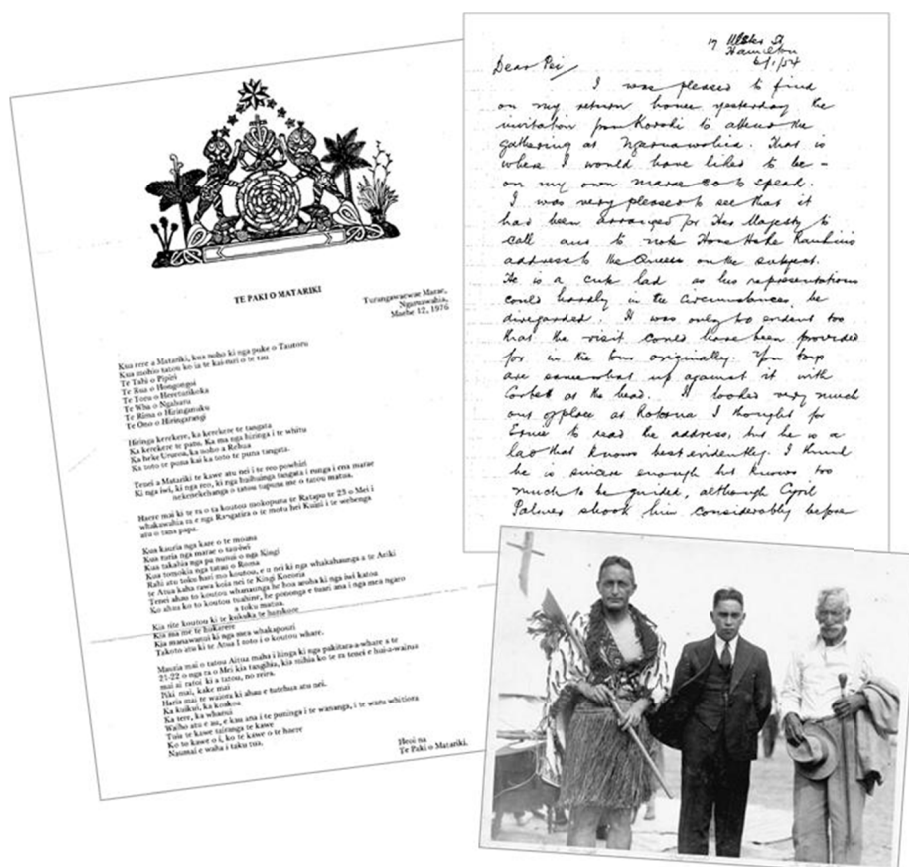 TE PAKI O MATARIKI
Turangawaewae Marae,
Ngaruawahia,
Maehe 12, 1976
Kua rere a Matariki, kua noho ki nga puke o Tautoru
Kua mohio tatou ko ia te kai-turi o te tau
Te Tahi o Pipiri
Te Rua o Hongongoi
Te Toru o Hereturikoka
Te Wha o Ngahuru
Te Rima o Hiringanuku
Te Ono o Hiringarangi
Hiringa kerekere, ka kerekere te tangata
Ka kerekere te patu. Ka ma nga hiringa i te whitu
Ka heke Ururoa, ka noho a Rehua
Ka toto te puna kai ka toto te puna tangata.
Tenei a Matariki te kawe atu nei i te reo powhiri
Ki nga iwi, ki nga reo, ki nga huihuinga tangata i runga i ena marae
nekenekehanga o tatou tupuna me o tatou matua.
Haere mai ki te ra o ta koutou mokopuna te Ratapu te 23 o Mei i
whakawahia ra e nga Rangatira o te motu hei Kuini i te wehenga
atu o tana papa.
Kua kauria nga kare o te moana
Kua ruria nga marae o tauiwi
Kua takahia nga pa nunui o nga Kingi
Kua tomokia nga tatau o Roma
Rahi atu toku hari mo koutou, e u nei ki nga whakahaunga a te Ariki
te Atua kaha rawa koia nei te Kingi Kororia
Tenei ahau to koutou whanaunga he hoa aroha ki nga iwi katoa
Ko ahau ko to koutou tuahine, he pononga e tuari ana i nga mea ngaro
a toku matua.
Kia rite koutou ki te kukuka te harikore
Kia ma me te hukarere
Kia manawanui ki nga mea whakapouri
Takoto atu ki te Atua I roto i o koutou whare.
Mauria mai o tatou Aitua maha i linga ki nga pakitara-a-whare a te
21-22 o nga ra o Mei kia tangihia, kia mihia ko te ra tenei e hui-a-wairua
mai ai ratou ki a tatou, no reira.
Piki mai, kake mai
Haria mai te waiora ki ahau e tutehua atu nei.
Ka kuikui, ka koakoa
Ka tere, ka whaeui
Waiho atu e au, e kau ana i te puninga i te wananga, i te wara whitiora
Tuia te kawe tairanga te kawe
Ko te kawe o i, ko te kawe o te haere
Naumai e waha i taku tua.
Heoi na
Te Paki o Matariki.
17 Ulster St
Hamilton
6/1/54
Dear Pei/
I was pleased to find
on my return home yesterday the
invitation from Koroki to attend the
gathering at Ngaruawahia. That is
where I would have liked to be –
on my own marae so to speak.
I was very pleased to see that it
had been arranged for Her Majesty to
call and to note Hone Heke Rankin's
address to the Queen on the subject.
He is a cute lad as his representations
could hardly in the circumstances, be
disregarded. It was only too evident too
that the visit could have been provided
for in the tour originally. You boys
are somewhat up against it with
Corbett as the head. It looked very much
out of place at Rotorua I thought for
Ernie to read the address, but he is a
lad that knows best evidently. I think
he is sincere enough but knows too
much to be guided, although Cyril
Palmer shook him considerably before